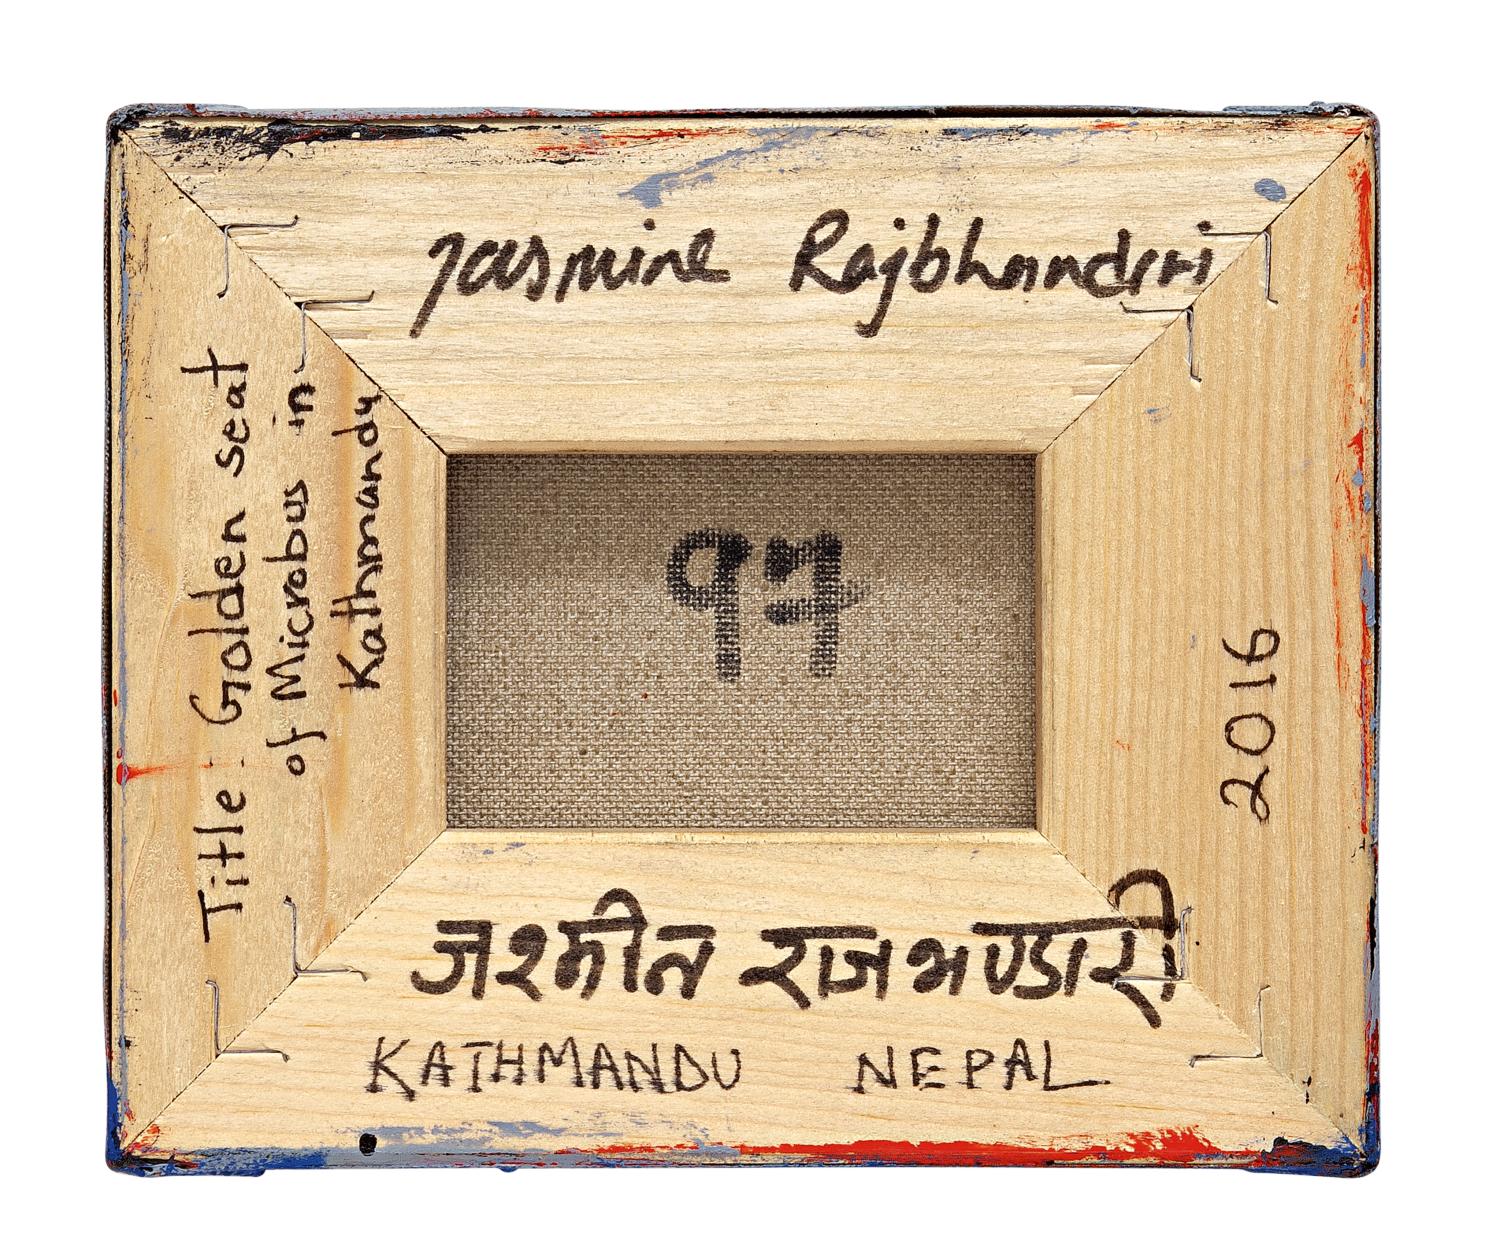 Jasmine Rajbhandari
Title : Golden seat
of Microbus in
Kathmandu
97
2016
जश्मीन राजभण्डारी
KATHMANDU NEPAL